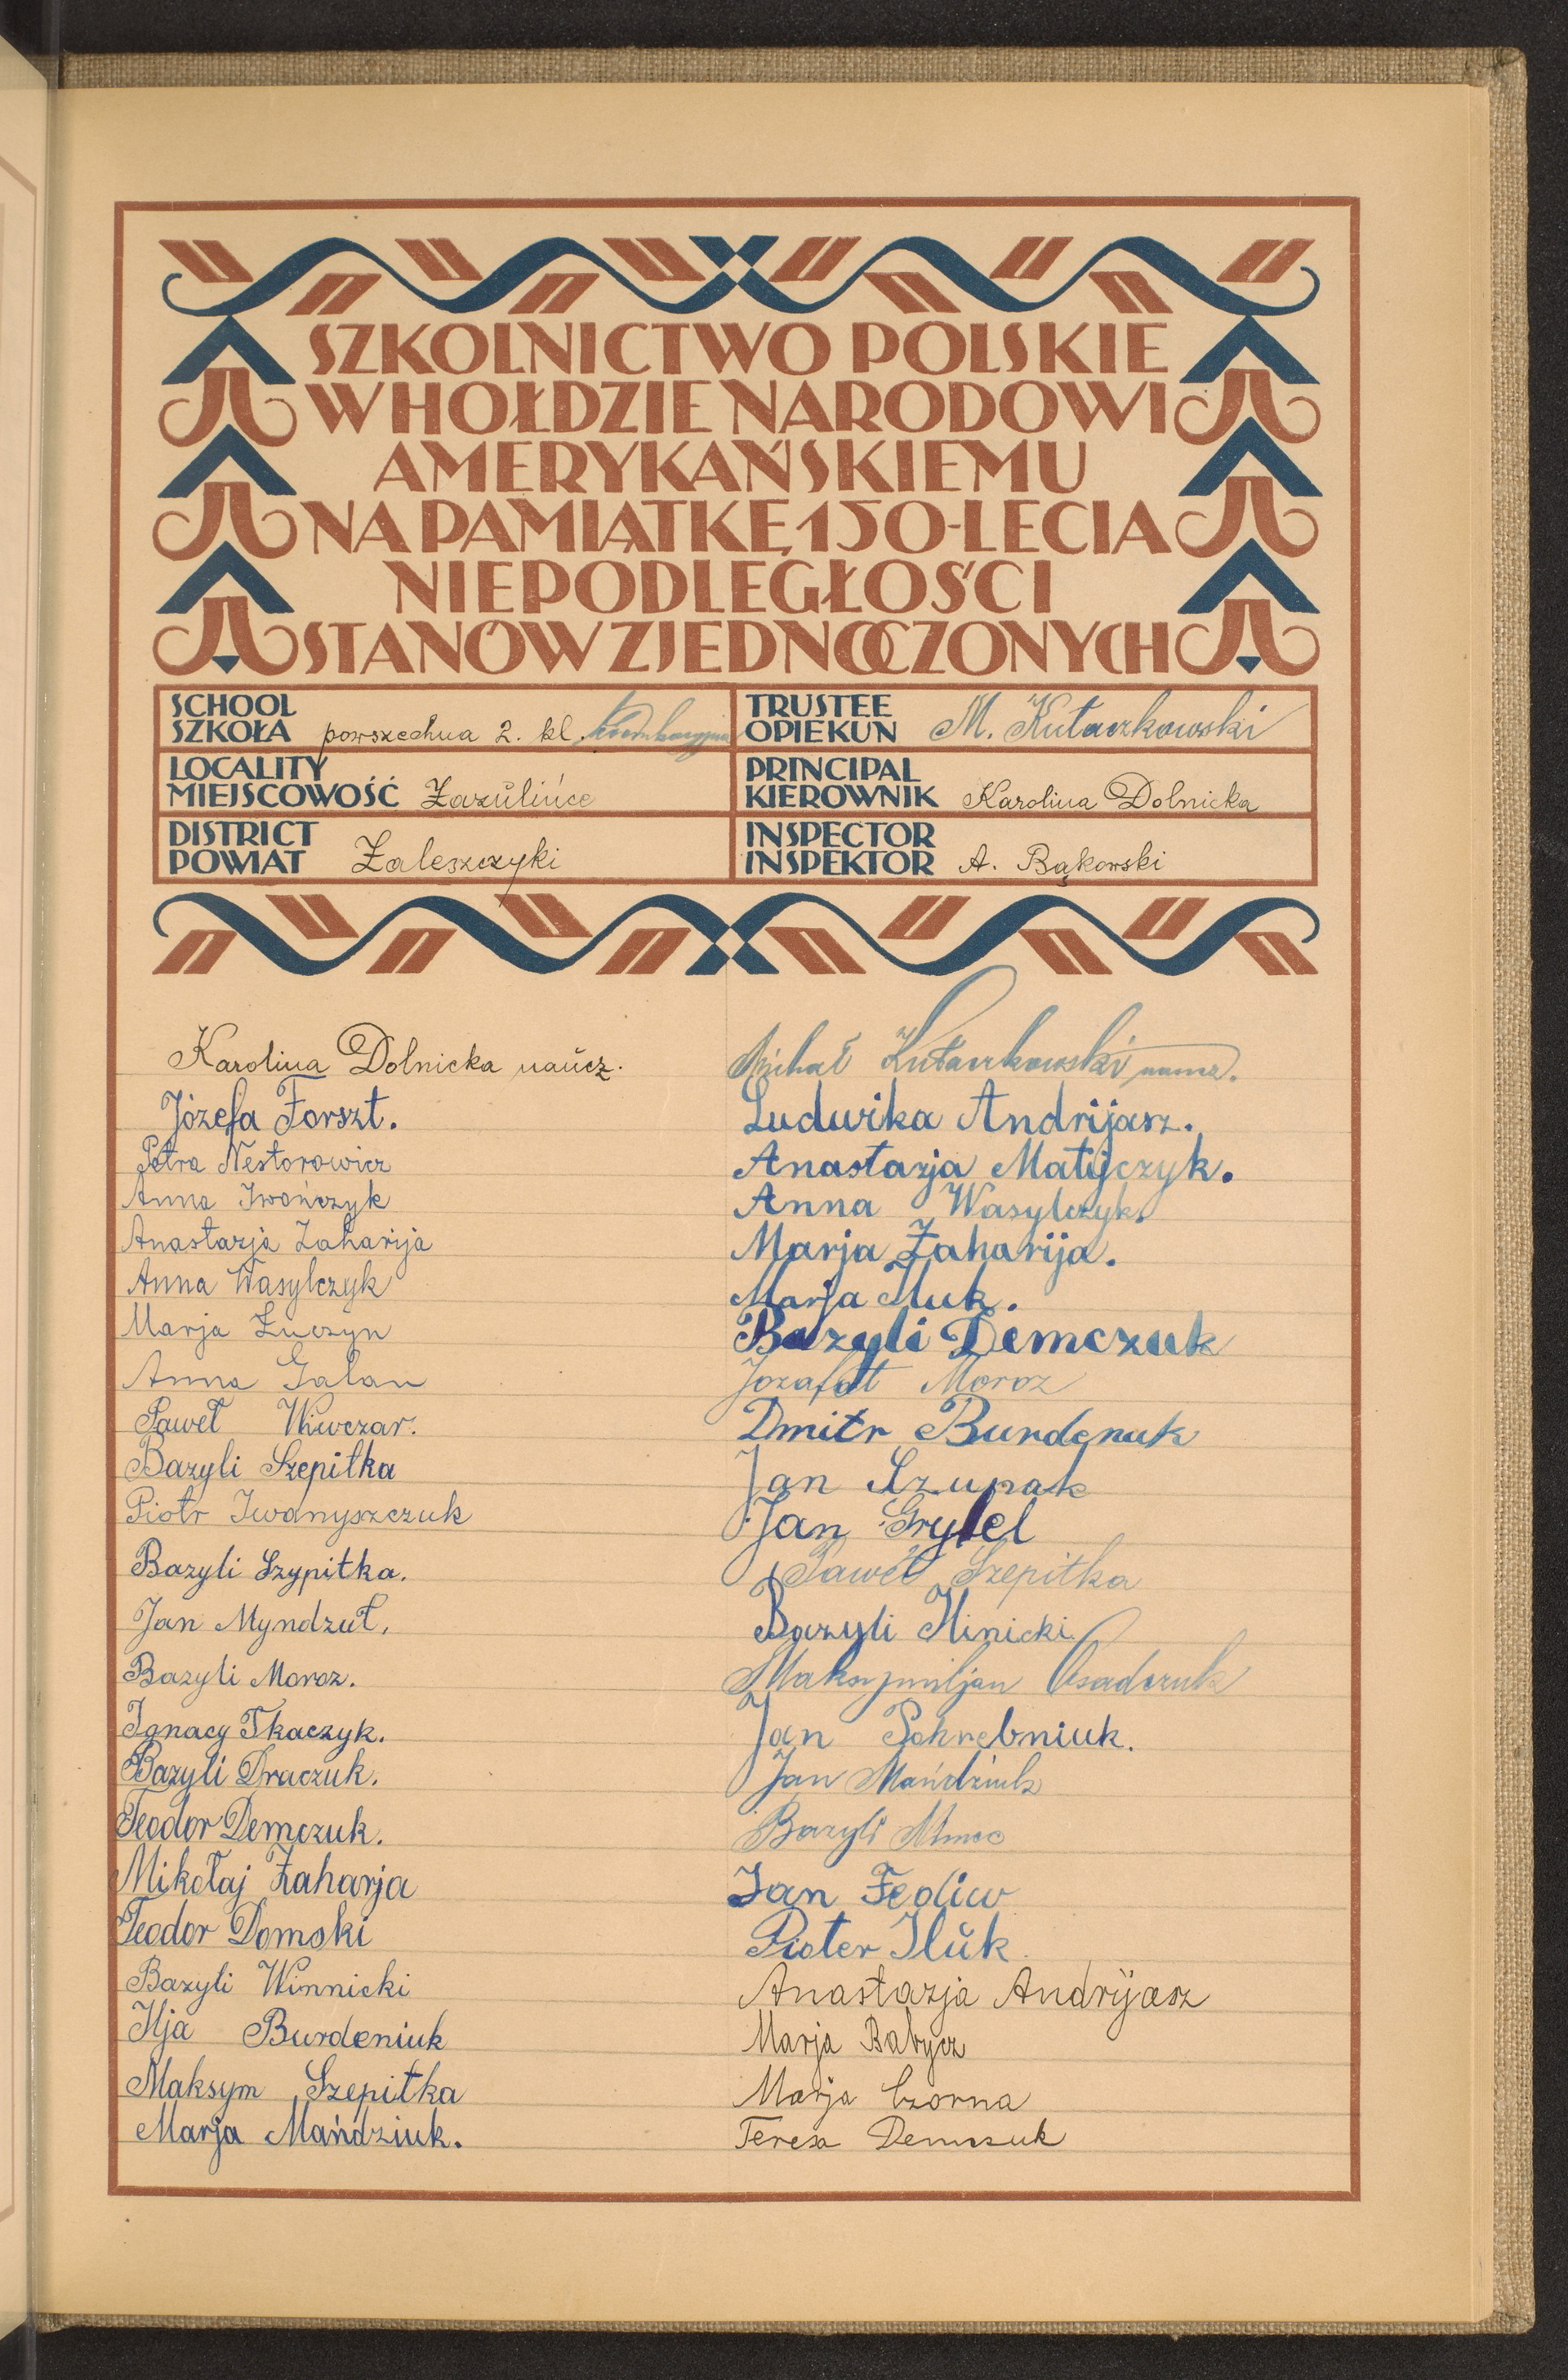 SZKOLNICTWO POLSKIE
W HOŁDZIE NARODOWI
AMERYKAŃSKIEMU
NA PAMIĄTKĘ 150-LECIA
NIEPODLEGŁOŚCI
STANÓW ZJEDNOCZONYCH
SCHOOL
SZKOŁA powszechna 2. kl.
LOCALITY
MIEJSCOWOŚĆ Zazulińce
DISTRICT
POWIAT Zaleszczyki
TRUSTEE
OPIEKUN M. Kutaczkowski
PRINCIPAL
KIEROWNIK Karolina Dolnicka
INSPECTOR
INSPEKTOR A. Bąkowski
Karolina Dolnicka naucz.
Józefa Forszt.
Petra Nestorowicz
Anna Iwończyk
Anastazja Zaharija
Anna Wasylczyk
Marja Łuczyn
Anna Galan
Paweł Wiwczar.
Bazyli Szepitka
Piotr Iwanyszczuk
Bazyli Szypitka.
Jan Myndzuł.
Bazyli Moroz.
Ignacy Tkaczyk.
Bazyli Draczuk.
Teodor Demczuk.
Mikołaj Zaharja
Teodor Domski
Bazyli Winnicki
Ilja Burdeniuk
Maksym Szepitka
Marja Mańdziuk.
Michał Kutaczkowski naucz.
Ludwika Andrijasz.
Anastazja Matijczyk.
Anna Wasylczyk.
Marja Zaharija.
Marja Muk.
Bazyli Demczuk
Jozafat Moroz
Dmitr Burdenuk
Jan Szupak
Jan Grylel
Paweł Szepitka
Bazyli Hinicki
Maksymiljan Osadczuk
Jan Pohrebniuk.
Jan Mańdziuk
Bazyli
Jan Fediw
Pioter Iluk
Anastazja Andrijasz
Marja Babycz
Marja Czorna
Teresa Demczuk